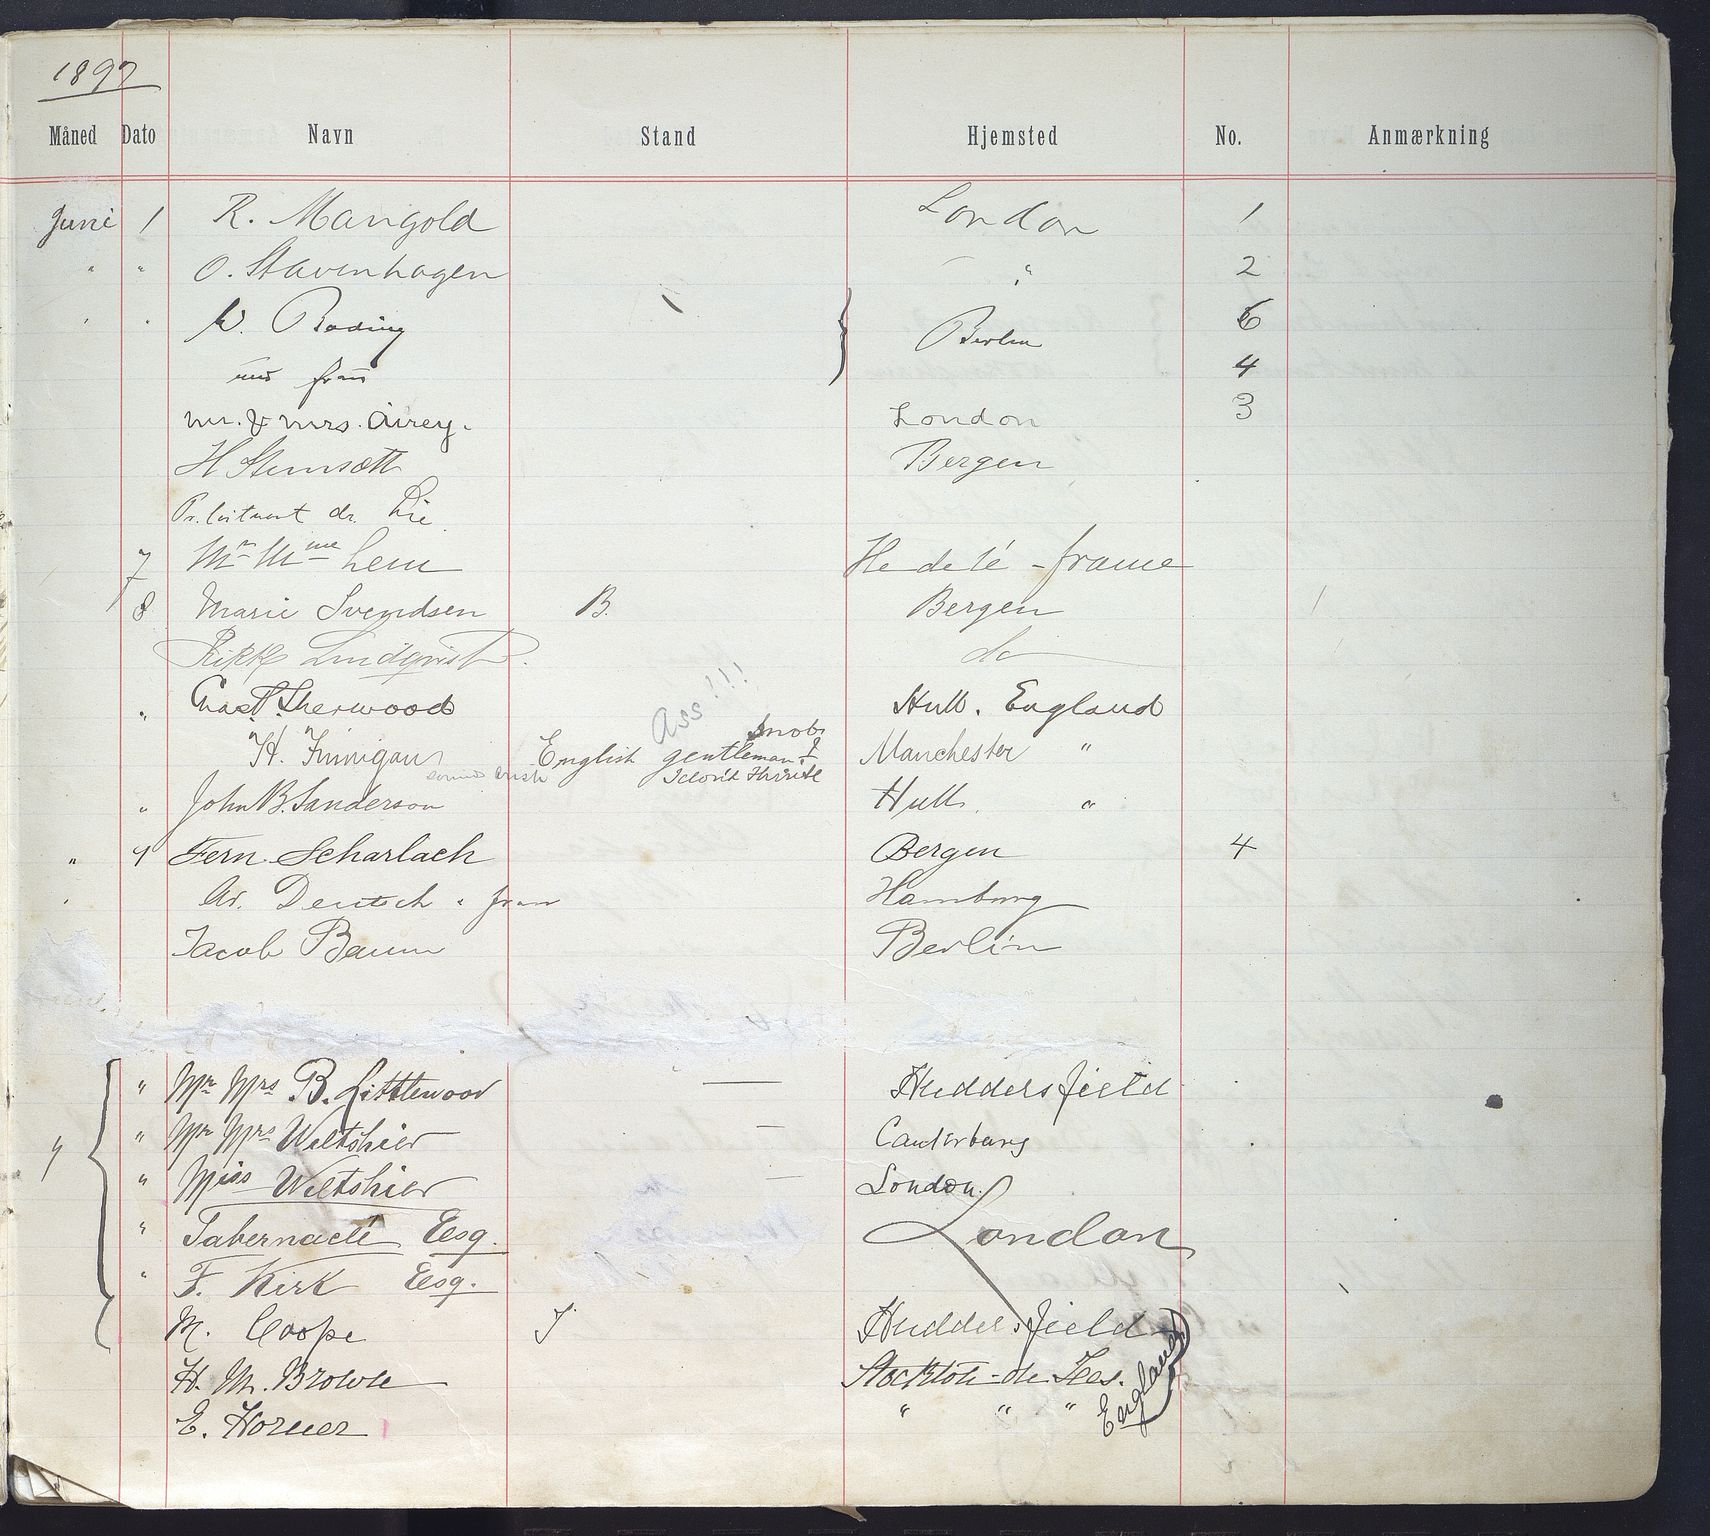 1897
Måned Dato Navn Stand Hjemsted No. Anmærkning
Juni 1 R. Mangold London 1
" " O. Stavenhagen " 2
" " W. Boding Berlin 6
und frau 4
Mr. & Mrs. Airey. London 3
H Bergen
Pr. løitnant dr. Lie
7 Mr Mme Lem
8 Marie Svendsen B. Bergen
Rikke Lindqvist. do
Ass!!!
" Chas T. Sherwood Hull. England
snob
H. Finnigan English gentleman? Manchester "
I don't think
" John B. Sanderson Hull. "
" 9 Fern. Scharlach Bergen 4
" Ad. Deutsch & frau Hamburg
Jacob Baum Berlin
" Mr Mrs B. Littlewood — Huddersfield
" Mr Mrs Wiltshier — Canterbury
9 " Miss Wiltshier — London.
" Tabernacle Esq. London
" F. Kirk Esq.
M. Coope Huddersfield
H. M. Browne Stockton-on-Tees. England
E. Horner " " "